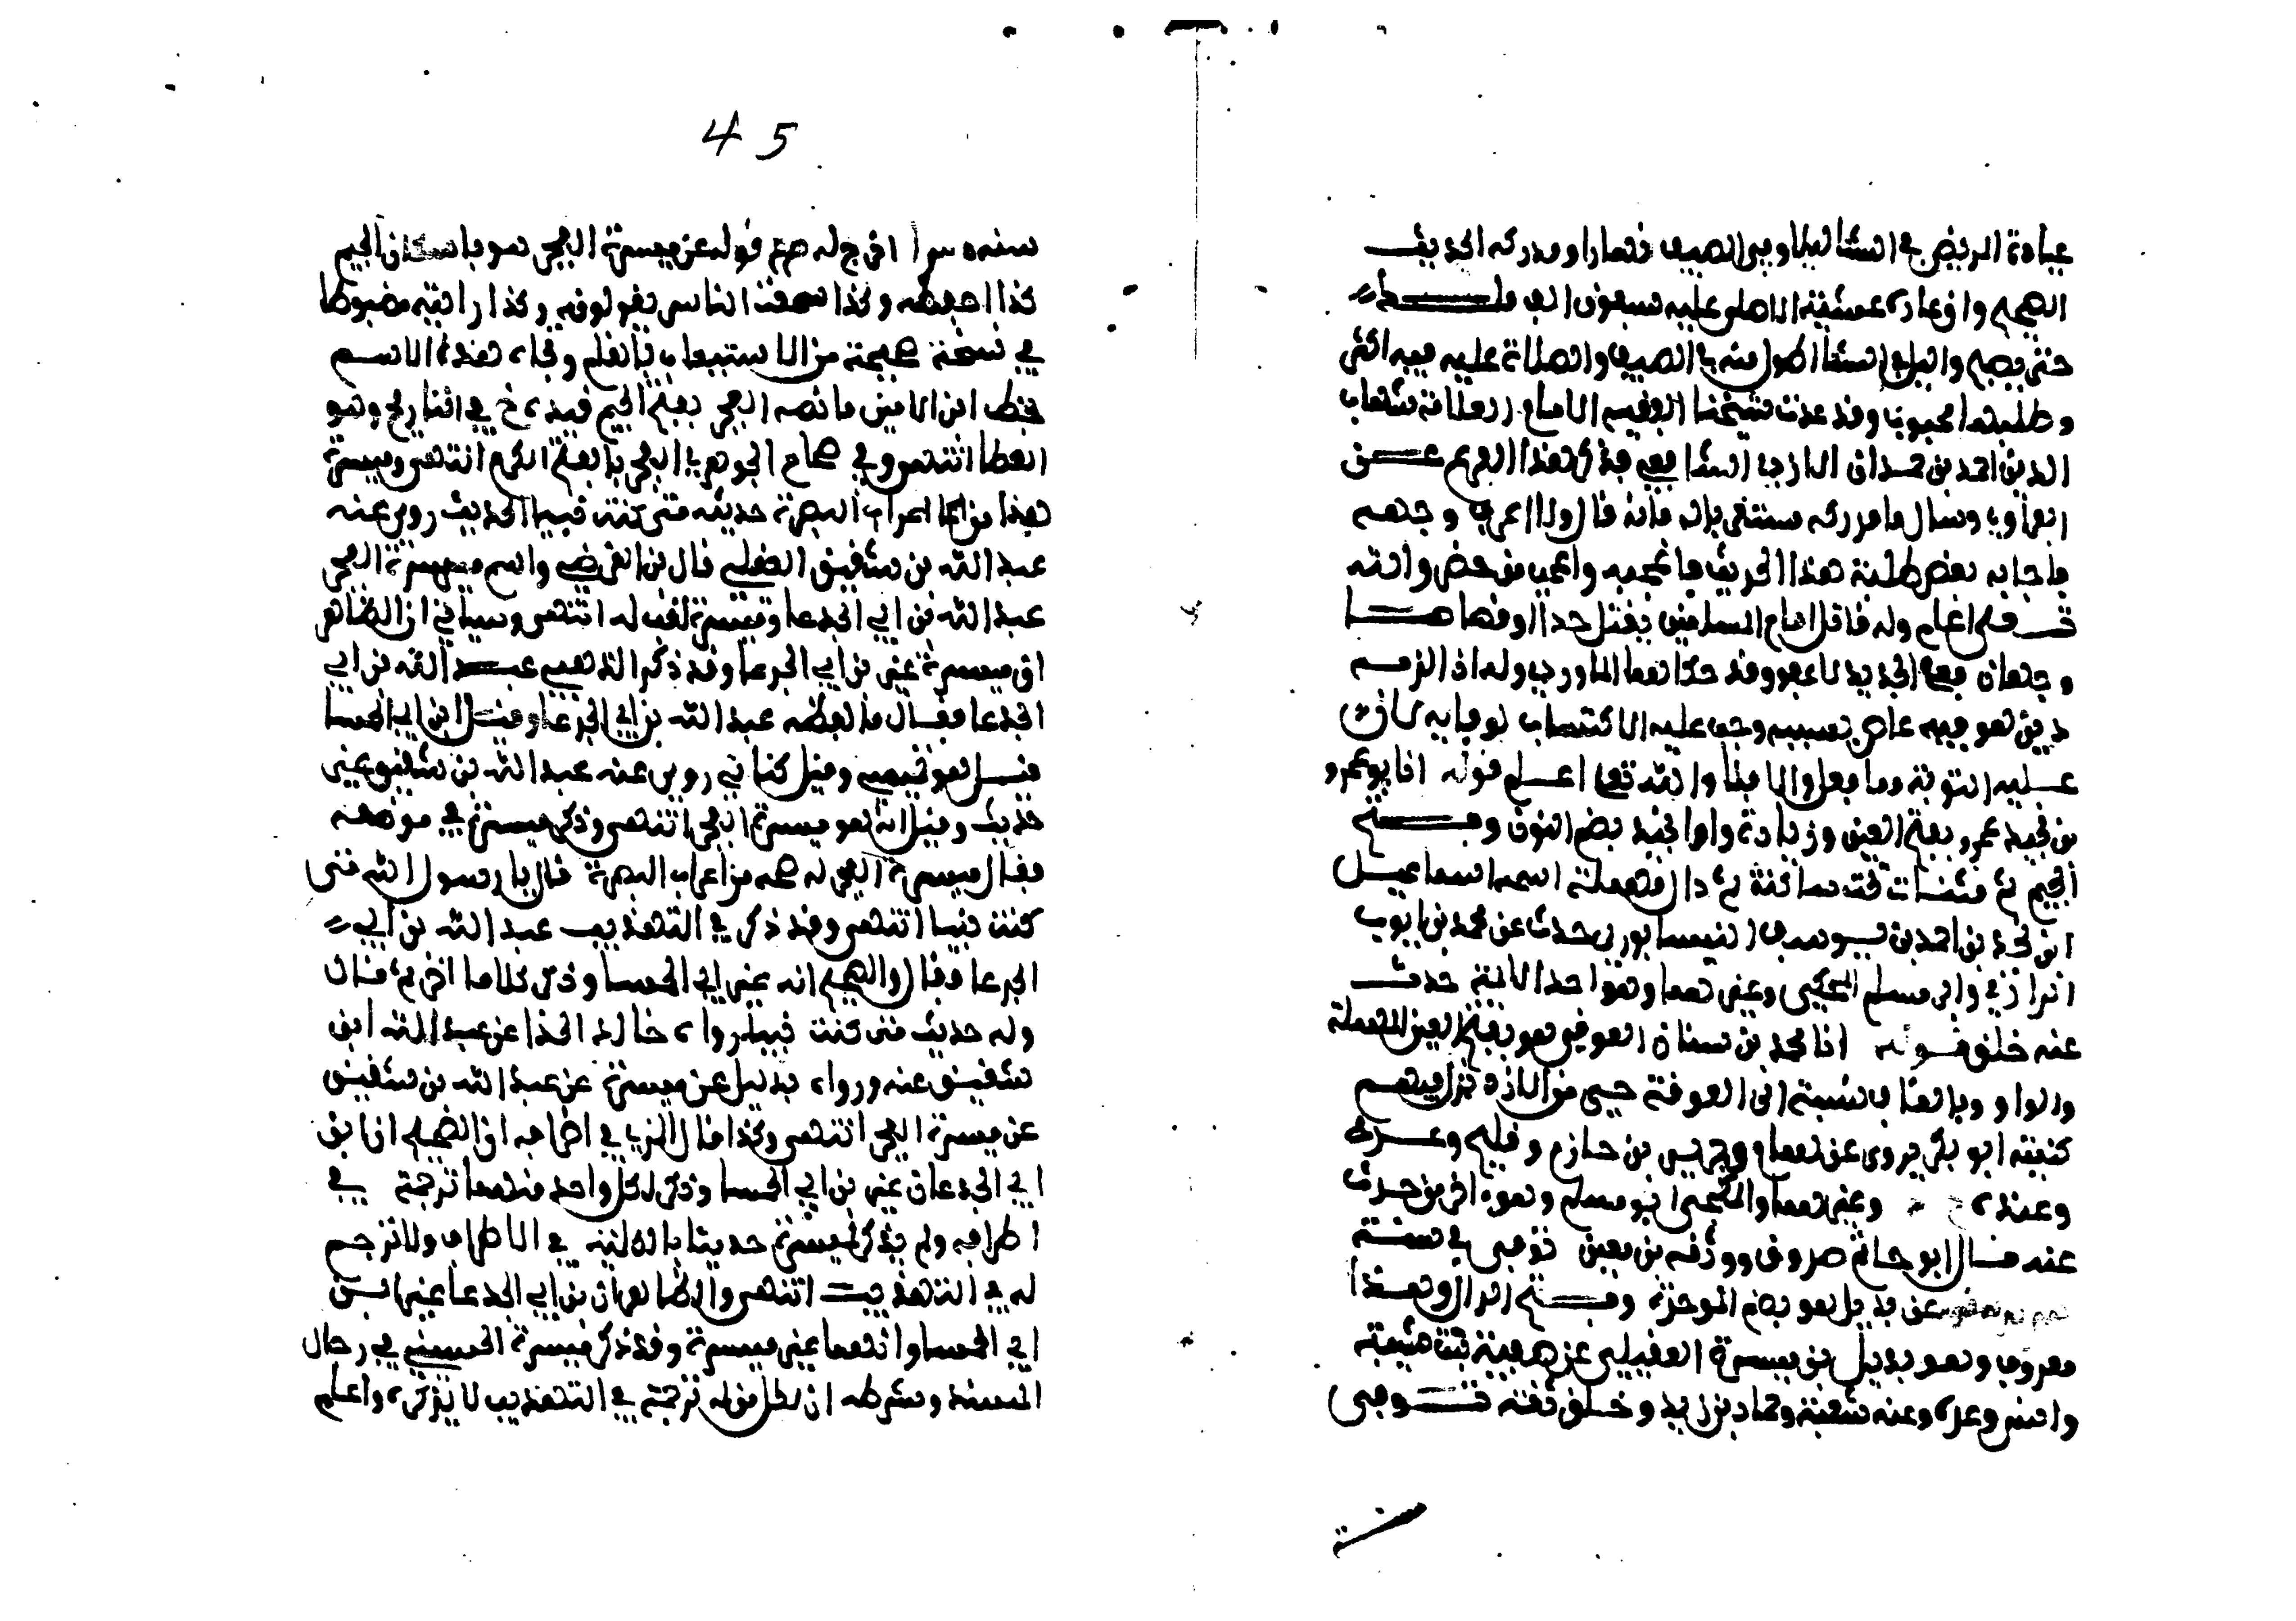 عيادة المريض في الشتا ليلا وفي الصيف نهارا ومدركه الحديث
الصحيح وان عاده عشية الا صلى عليه سبعون الف ملك
حتى يصبح والليل في الشتا اطول منه في الصيف والصلاة عليه فيه اكثر
وطلبتها محبوب وقد عدت شيخنا الفقيه الامام العلامة شهاب
الدين احمد بن حمدان الاذرعي الشافعي فذكر هذا الفرع عن
الفراوي وسال ما مدركه مستنكرا له فانه قال ولا اعرف وجهه
فاجابه بعض طلبته هذا الحديث فاعجبه واعجب من حضر والله
اعلم وله فاقل امام المسلمين
وجهان في الجديد لا عفو وقد حكاهما الماوردي وله ان الزمه
دين هو فيه عاص بسببه وجب عليه الاكتساب لوفايه لان
عليه التوبة وما فعل والا فلا والله تعالى اعلم قوله انا ابو عمرو
بن نجيد عمرو بفتح العين وزيادة واو نجيد بضم النون وفتح
الجيم ثم مثناة تحت ساكنة ثم دال مهملة اسمه اسماعيل
ابن نجيد بن احمد بن يوسف النيسابوري حدث عن محمد بن ايوب
الرازي وابي مسلم الكجي وغيرهما وهو احد الايمة حدث
عنه خلق قوله انا محمد بن سنان العوقي هو بفتح العين المهملة
والواو وبالقاف نسبة الى العوقة حي من الازد نزل فيهم
كنيته ابو بكر يروي عن همام وجرير بن حازم وفليح وعدة
وعنده خ وغيرهما والكجي ابو مسلم وهو اخر من حدث
عنه قال ابو حاتم صدوق ووثقه بن معين توفي في سنة
عن بديل هو بضم الموحدة وفتح الدال وهذا
معروف وهو بديل بن ميسرة العقيلي عن صفية بنت شيبة
وانس وعدة وعنه شعبة وحماد بن زيد وخلق ثقة توفي
سنة
45
سنه اخرج له م ع قوله عن ميسرة الفجر هو باسكان الجيم
كذا احفظه وكذا سمعت الناس يقولونه وكذا رايته مضبوطا
في نسخة صحيحة من الاستيعاب بالقلم وجاء هذا الاسم
بخط ابن الامين ما نصه الفجر بفتح الجيم قيده خ في التاريخ وهو
العطا انتهى وفي صحاح الجوهري الفجر بالفتح الكرم انتهى وميسرة
هذا من اعراب البصرة حديثه متى كنت نبيا الحديث روى عنه
عبد الله بن شقيق العقيلي قال بن الفرضي واسم ميسرة الفجر
عبد الله بن ابي الجدعا وميسرة لقب له انتهى وسياتي ان الظاهر
ان ميسرة غير بن ابي الجدعا وقد ذكر الذهبي عبد الله بن ابي
الجدعا فقال ما لفظه عبد الله بن ابي الجدعا وقيل ابن ابي الحمسا
قيل هو تميمي وقيل كناني روى عنه عبد الله بن شقيق غير
حديث وقيل انه هو ميسرة الفجر انتهى وذكر ميسرة في موضعه
فقال ميسرة الفجر له صحبه من اعراب البصرة قال يا رسول الله متى
كنت نبيا انتهى وقد ذكر في التهذيب عبد الله بن ابي
الجدعا وقال والصحيح انه غير ابن ابي الحمسا وذكر كلاما اخر ثم قال
وله حديث متى كنت نبيا رواه خالد الحذا عن عبد الله ابن
شقيق عنه ورواه بديل عن ميسرة عن عبد الله بن شقيق
عن ميسرة الفجر انتهى وكذا قال المزي في اطرافه ان الصحيح ان بن
ابي الجدعان غير بن ابي الحمسا وذكر لكل واحد منهما ترجمة في
اطرافه ولم يذكر لميسرة حديثا بالكلية في الاطراف ولا ترجم
له في التهذيب انتهى والظاهر ان بن ابي الجدعا غير ابن
ابي الحمسا وانهما غير ميسرة وقد ذكر ميسرة الحسيني في رجال
المسند وشرطه ان كل من له ترجمة في التهذيب لا يذكره واعلم